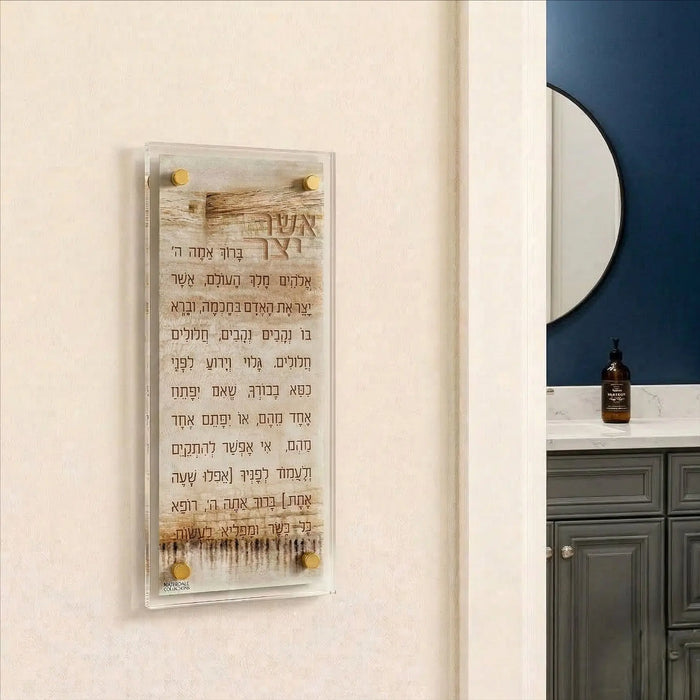 אשר
יצר
בָּרוּךְ אַתָּה ה'
אֱלֹהֵינוּ מֶלֶךְ הָעוֹלָם, אֲשֶׁר
יָצַר אֶת הָאָדָם בְּחָכְמָה, וּבָרָא
בוֹ נְקָבִים נְקָבִים, חֲלוּלִים
חֲלוּלִים. גָּלוּי וְיָדוּעַ לִפְנֵי
כִסֵּא כְבוֹדֶךָ, שֶׁאִם יִפָּתֵחַ
אֶחָד מֵהֶם, אוֹ יִסָּתֵם אֶחָד
מֵהֶם, אִי אֶפְשַׁר לְהִתְקַיֵּם
וְלַעֲמוֹד לְפָנֶיךָ [אֲפִלּוּ שָׁעָה
אֶחָת] בָּרוּךְ אַתָּה ה', רוֹפֵא
כָל בָּשָׂר וּמַפְלִיא לַעֲשׂוֹת.
COLLECTIONS